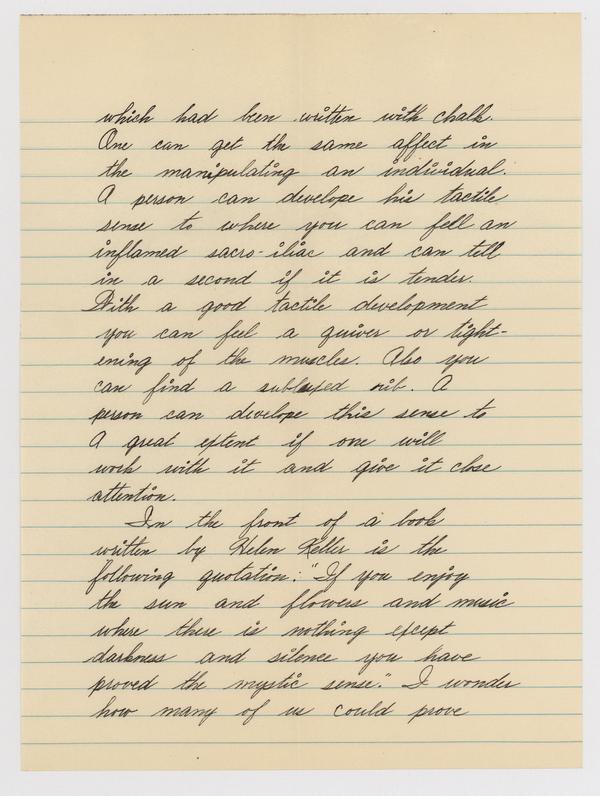 which had been written with chalk.
One can get the same affect in
the manipulating an individual.
A person can develope his tactile
sense to where you can fell an
inflamed sacro-iliac and can tell
in a second if it is tender.
With a good tactile development
you can feel a quiver or tight-
ening of the muscles. Also you
can find a subluxed rib. A
person can develope this sense to
a great extent if one will
work with it and give it close
attention.
In the front of a book
written by Helen Keller is the
following quotation: "If you enjoy
the sun and flowers and music
where there is nothing except
darkness and silence you have
proved the mystic sense." I wonder
how many of us could prove